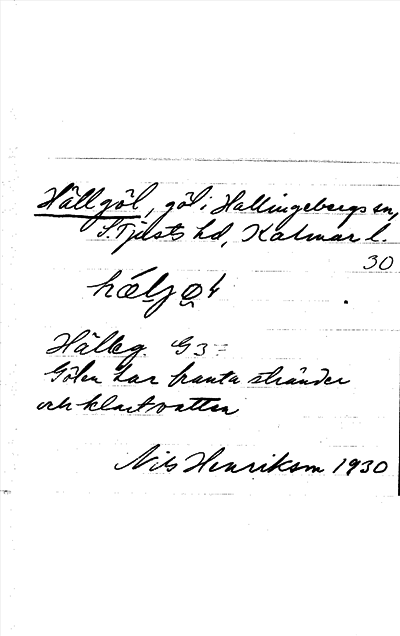 Hällgöl, göl i Hallingebergs sn,
S. Tjusts hd, Kalmar l.
30
Hälleg. G3 =
Gölen har branta stränder
och klart vatten
Nils Henrikson 1930